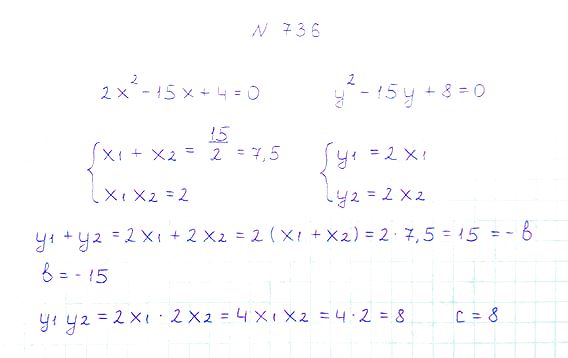 N 736
2x² - 15x + 4 = 0    y² - 15y + 8 = 0
{ x1 + x2 = 15/2 = 7,5    { y1 = 2x1
x1 x2 = 2    y2 = 2x2
y1 + y2 = 2x1 + 2x2 = 2(x1 + x2) = 2·7,5 = 15 = -b
b = -15
y1 y2 = 2x1 · 2x2 = 4x1x2 = 4·2 = 8    c = 8